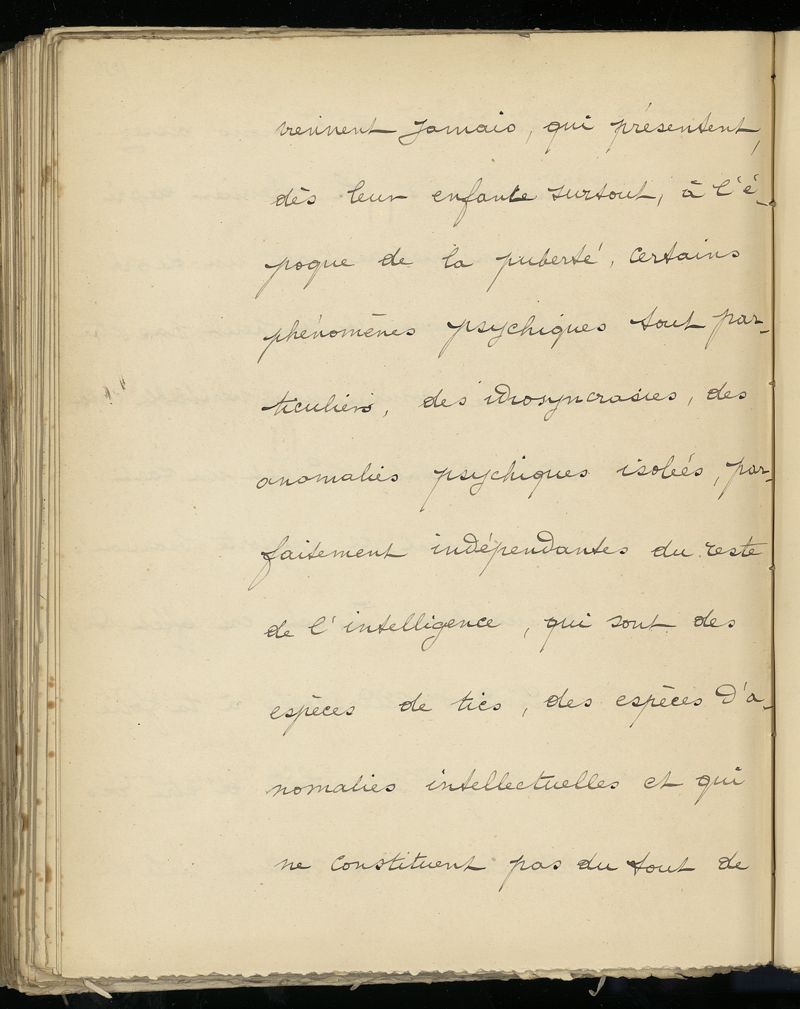 viennent jamais, qui présentent,
dès leur enfance surtout, à l'é-
poque de la puberté, certains
phénomènes psychiques tout par-
ticuliers, des idiosyncrasies, des
anomalies psychiques isolées, par-
faitement indépendantes du reste
de l'intelligence, qui sont des
espèces de tics, des espèces d'a-
nomalies intellectuelles et qui
ne constituent pas du tout de